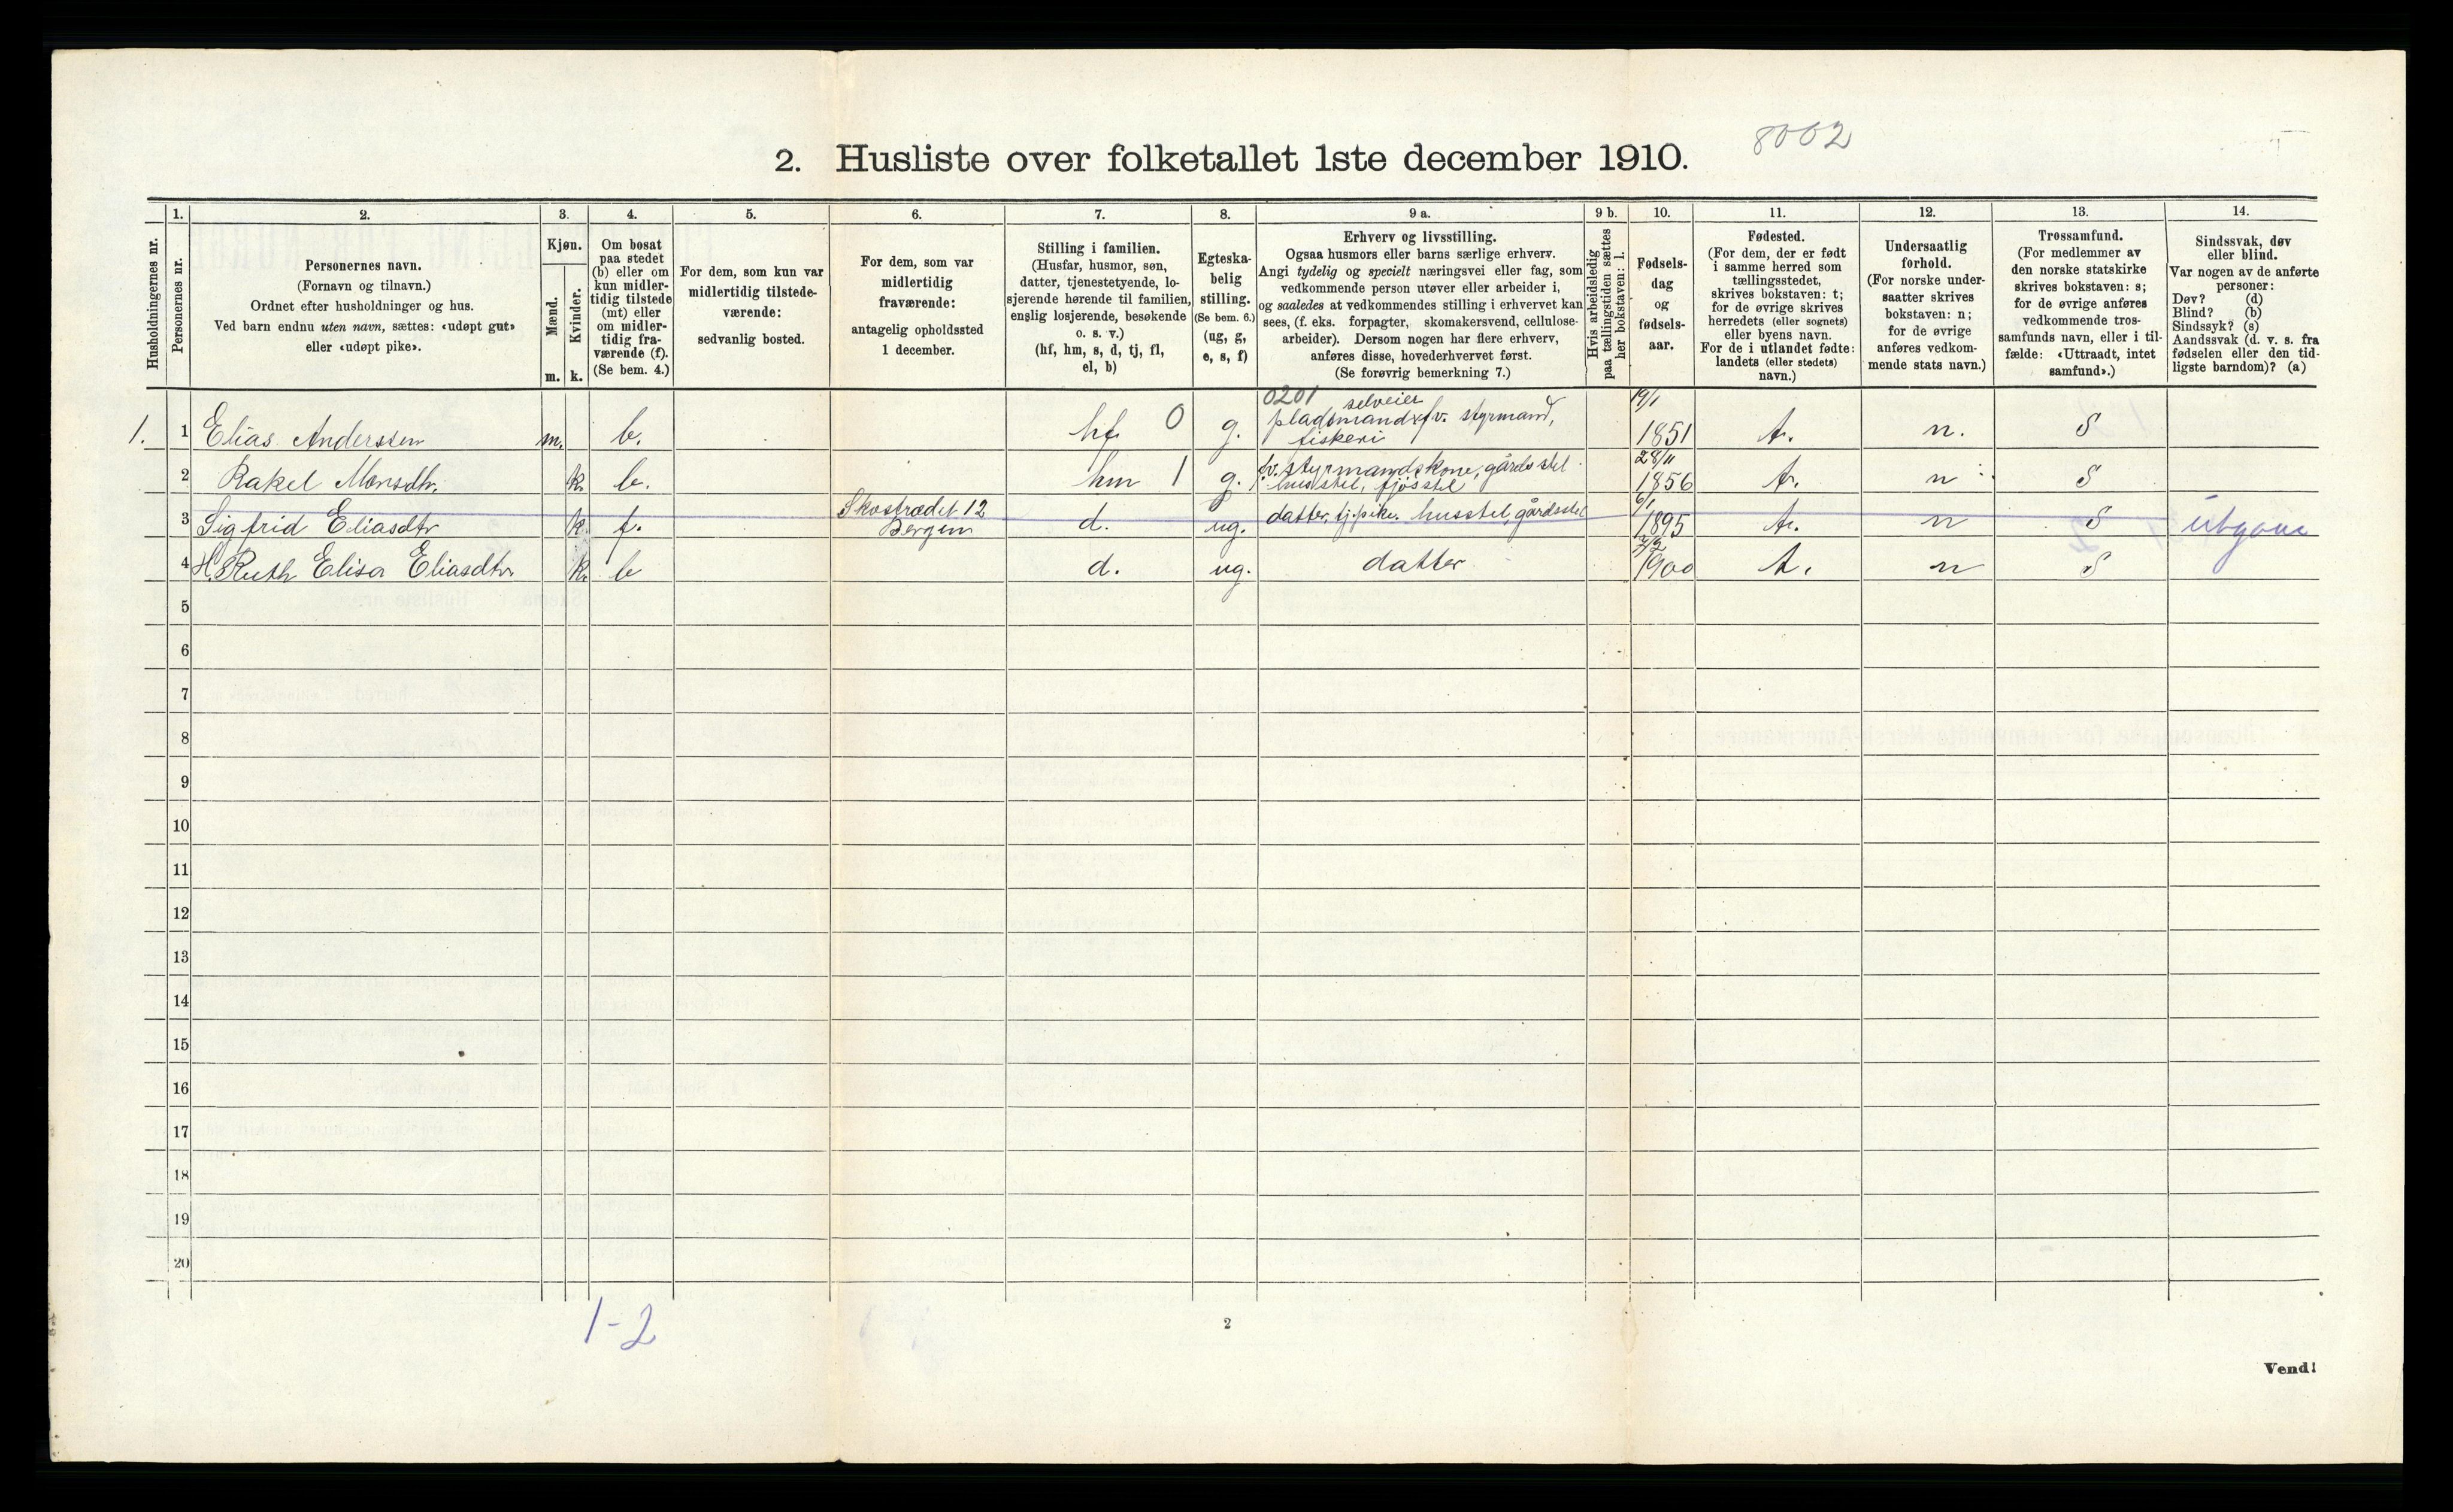 8002
2. Husliste over folketallet 1ste december 1910.
Husholdningernes nr.
1.
Personernes nr.
2.
Personernes navn.
(Fornavn og tilnavn.)
Ordnet efter husholdninger og hus.
Ved barn endnu uten navn, sættes: «udøpt gut»
eller «udøpt pike».
3.
Kjøn.
Mænd.
Kvinder.
m. k.
4.
Om bosat
paa stedet
(b) eller om
kun midler-
tidig tilstede
(mt) eller
om midler-
tidig fra-
værende (f).
(Se bem. 4.)
5.
For dem, som kun var
midlertidig tilstede-
værende:
sedvanlig bosted.
6.
For dem, som var
midlertidig
fraværende:
antagelig opholdssted
1 december.
7.
Stilling i familien.
(Husfar, husmor, søn,
datter, tjenestetyende, lo-
sjerende hørende til familien,
enslig losjerende, besøkende
o. s. v.)
(hf, hm, s, d, tj, fl,
el, b)
8.
Egteska-
belig
stilling.
(Se bem. 6.)
(ug, g,
e, s, f)
9 a.
Erhverv og livsstilling.
Ogsaa husmors eller barns særlige erhverv.
Angi tydelig og specielt næringsvei eller fag, som
vedkommende person utøver eller arbeider i,
og saaledes at vedkommendes stilling i erhvervet kan
sees, (f. eks. forpagter, skomakersvend, cellulose-
arbeider). Dersom nogen har flere erhverv,
anføres disse, hovederhvervet først.
(Se forøvrig bemerkning 7.)
9 b.
Hvis arbeidsledig
paa tællingstiden sættes
her bokstaven: l.
10.
Fødsels-
dag
og
fødsels-
aar.
11.
Fødested.
(For dem, der er født
i samme herred som
tællingsstedet,
skrives bokstaven: t;
for de øvrige skrives
herredets (eller sognets)
eller byens navn.
For de i utlandet fødte:
landets (eller stedets)
navn.)
12.
Undersaatlig
forhold.
(For norske under-
saatter skrives
bokstaven: n;
for de øvrige
anføres vedkom-
mende stats navn.)
13.
Trossamfund.
(For medlemmer av
den norske statskirke
skrives bokstaven: s;
for de øvrige anføres
vedkommende tros-
samfunds navn, eller i til-
fælde: «Uttraadt, intet
samfund».)
14.
Sindssvak, døv
eller blind.
Var nogen av de anførte
personer:
Døv? (d)
Blind? (b)
Sindssyk? (s)
Aandssvak (d. v. s. fra
fødselen eller den tid-
ligste barndom)? (a)
0201 selveier 19/1
1. 1 Elias Anderssen m. b. hf 0 g. pladsmand x fv. styrmand, 1851 t. n. S
fiskeri
28/11
2 Rakel Monsdtr. k. b. hm 1 g. fv. styrmandskone, gårdsstel 1856 t. n S
husstel, fjøsstel
Skostrædet 12 6/1
3 Sigfrid Eliasdtr k. f. Bergen d. ug. datter, tj.pike. husstel, gårdsstel 1895 t. n S utgaar
7/2
4 H. Ruth Elisa Eliasdtr. k. b d. ug. datter 1900 t. n S
5
6
7
8
9
10
11
12
13
14
15
16
17
18
19
20
1-2
2
Vend!